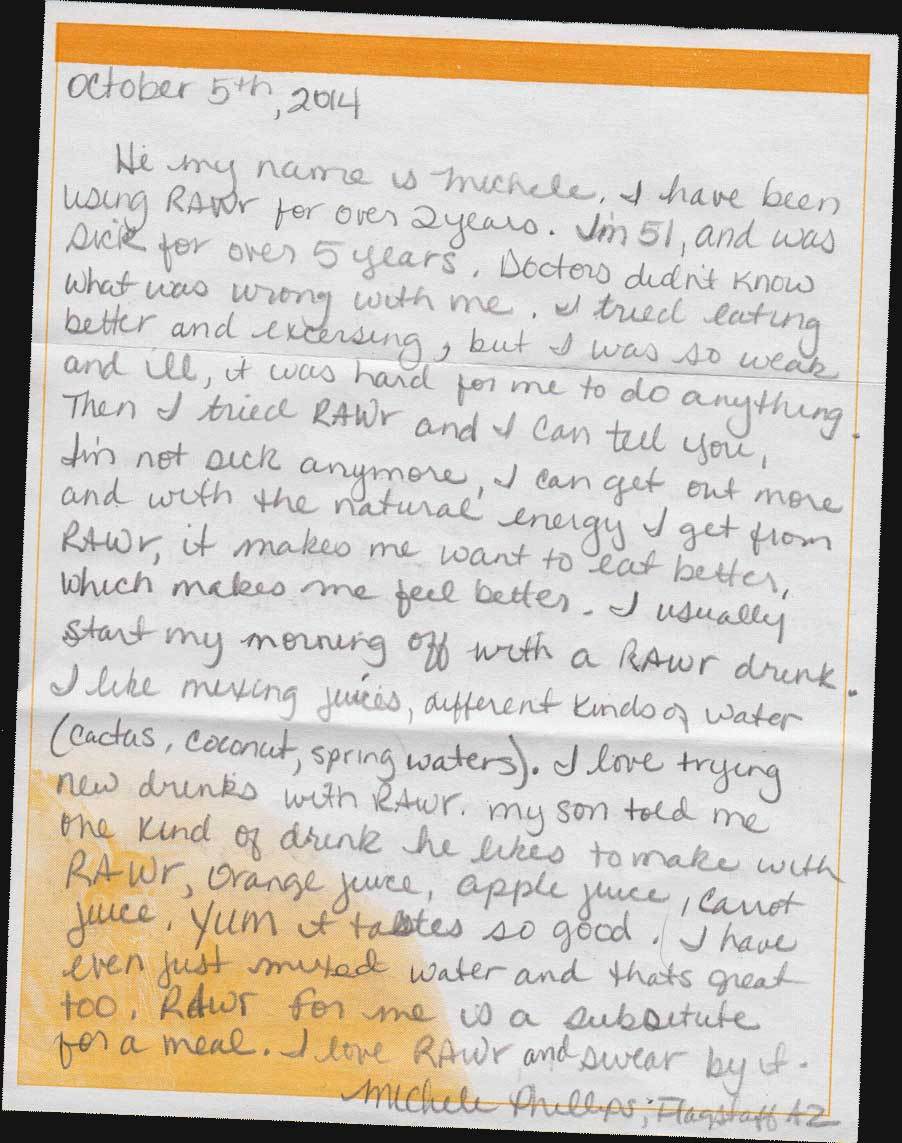 October 5th, 2014
Hi my name is Michele. I have been
using RAWr for over 2 years. I'm 51, and was
sick for over 5 years. Doctors didn't know
what was wrong with me. I tried eating
better and excersing, but I was so weak
and ill, it was hard for me to do anything.
Then I tried RAWr and I can tell you,
I'm not sick anymore, I can get out more
and with the natural energy I get from
RAWr, it makes me want to eat better,
which makes me feel better. I usually
start my morning off with a RAWr drink.
I like mixing juices, different kinds of water
(cactus, coconut, spring waters). I love trying
new drinks with RAWr. my son told me
one kind of drink he likes to make with
RAWr, orange juice, apple juice, carrot
juice. Yum it tastes so good. I have
even just mixed water and thats great
too. RAWr for me is a subsitute
for a meal. I love RAWr and swear by it.
Michele Phillips, Flagstaff AZ